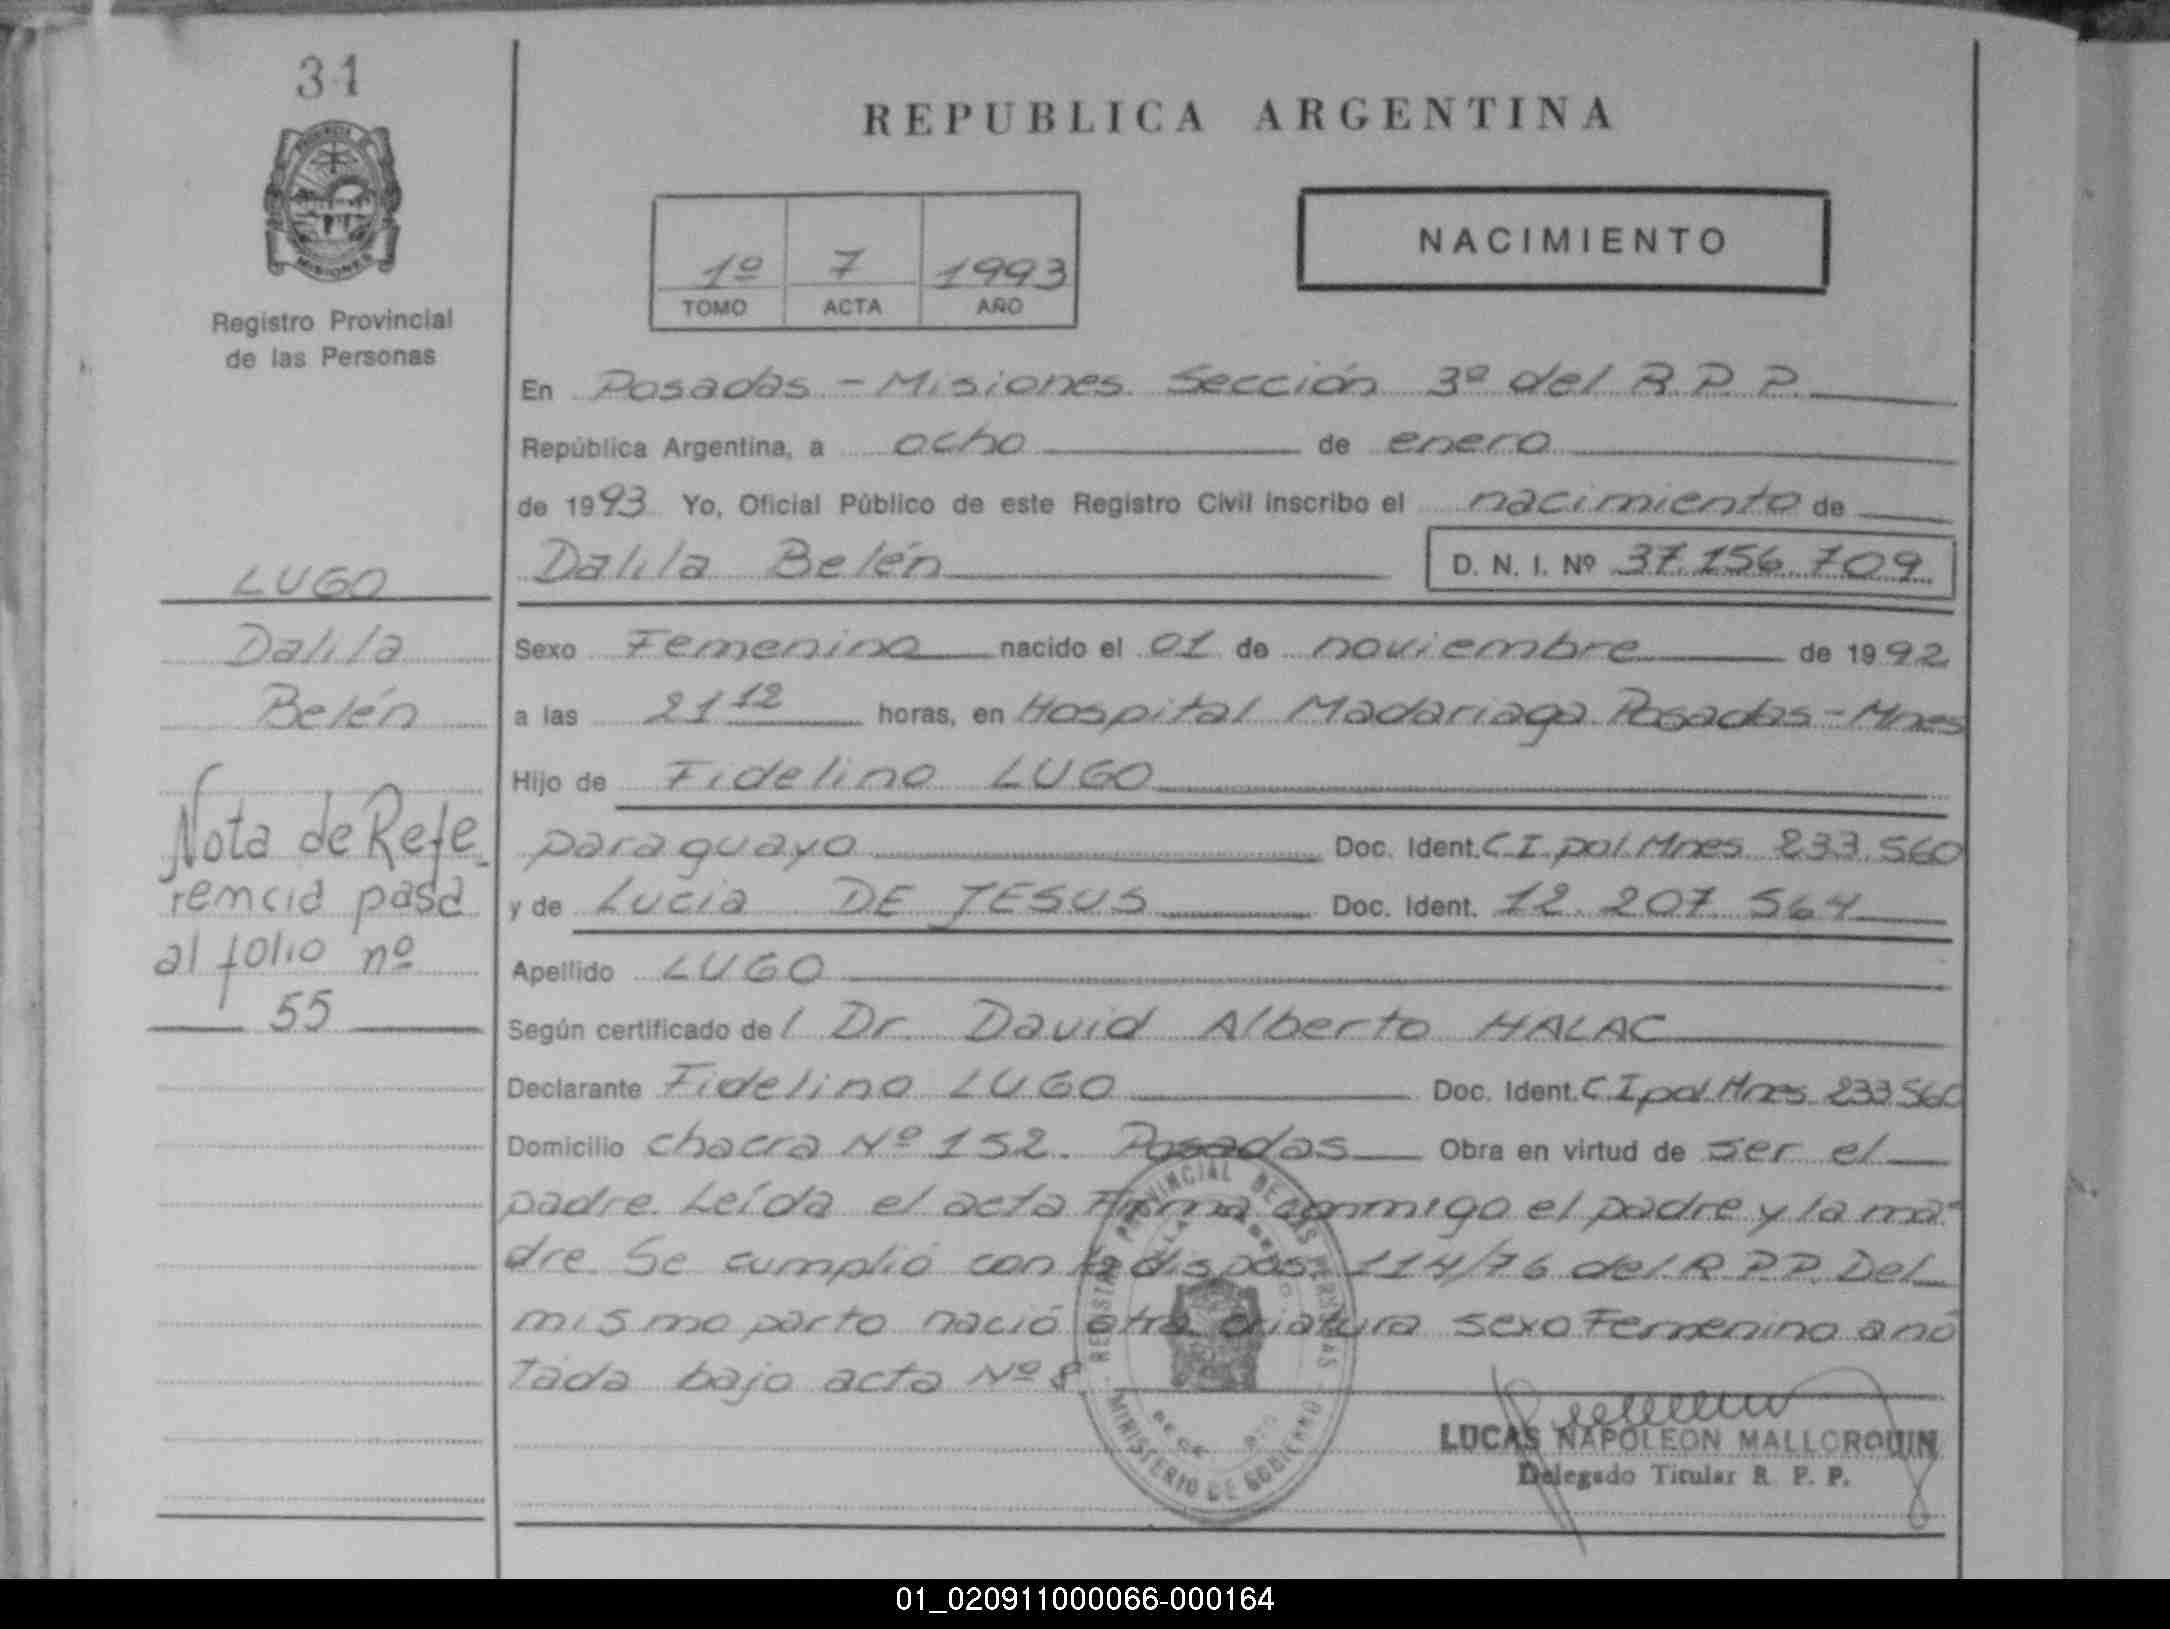 31
PROVINCIA
MISIONES
Registro Provincial
de las Personas
REPUBLICA ARGENTINA
1º 7 1993
TOMO ACTA AÑO
NACIMIENTO
En Posadas - Misiones. Sección 3º del R.P.P.
República Argentina, a ocho de enero
de 1993 Yo, Oficial Público de este Registro Civil inscribo el nacimiento de
Dalila Belén D. N. I. Nº 37.156.709
Sexo Femenino nacido el 01 de noviembre de 1992
a las 21 12 horas, en Hospital Madariaga Posadas - Mnes
Hijo de Fidelino LUGO
paraguayo Doc. Ident. C I pol Mnes 233.560
y de Lucia DE JESUS Doc. Ident. 12.207.564
Apellido LUGO
Según certificado de l Dr. David Alberto HALAC
Declarante Fidelino LUGO Doc. Ident. C I pol Mnes 233.560
Domicilio chacra Nº 152. Posadas Obra en virtud de ser el
padre. Leída el acta Firma conmigo el padre y la ma
dre. Se cumplió con la dispos. 114/76 del R.P.P. Del
mismo parto nació otra criatura sexo Femenino ano
tada bajo acta Nº 8
LUGO
Dalila
Belén
Nota de Refe
rencia pasa
al folio nº
55
REGISTRO PROVINCIAL DE LAS PERSONAS
MINISTERIO DE GOBIERNO
LUCAS NAPOLEON MALLORQUIN
Delegado Titular R. P. P.
01_020911000066-000164